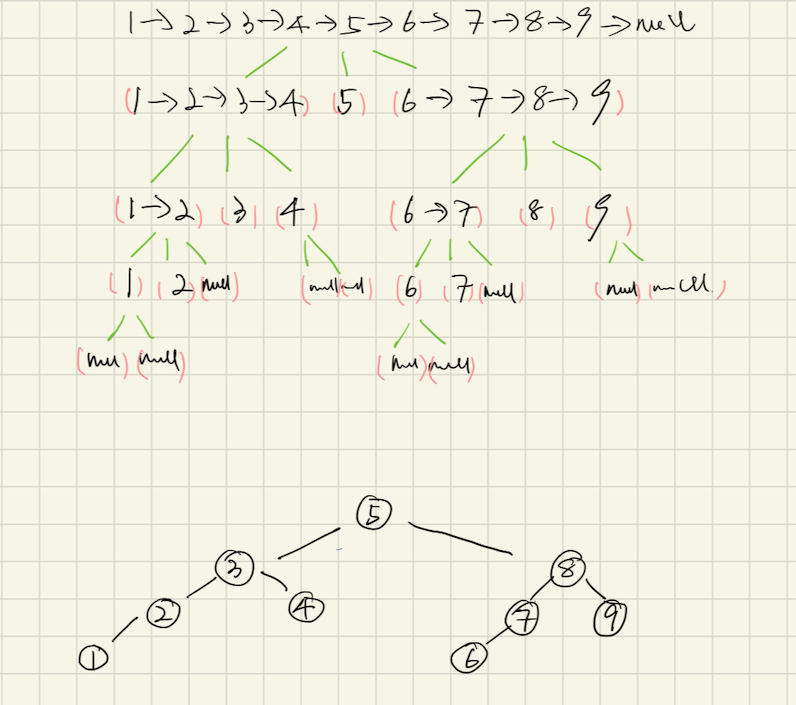 1→2→3→4→5→6→7→8→9→null
(1→2→3→4) (5) (6→7→8→9)
(1→2) (3) (4) (6→7) (8) (9)
(1) (2) (null) (null) (null) (6) (7) (null) (null) (null)
(null) (null) (null) (null)
5
3 8
2 4 7 9
1 6